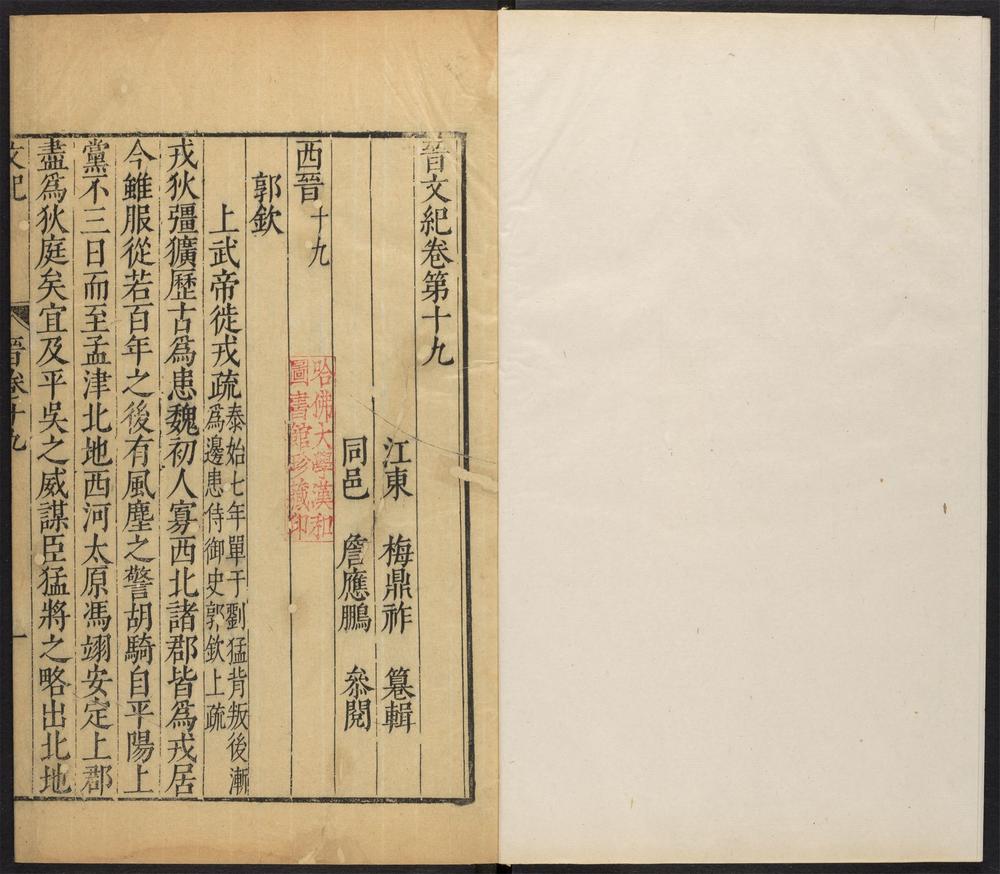 晉文紀卷第十九
江東 梅鼎祚 篹輯
同邑 詹應鵬 叅閱
西晉十九
郭欽
上武帝徙戎疏泰始七年單于劉猛背叛後漸
爲邊患侍御史郭欽上疏
戎狄彊獷歷古爲患魏初人寡西北諸郡皆爲戎居
今雖服從若百年之後有風塵之警胡騎自平陽上
黨不三日而至孟津北地西河太原馮翊安定上郡
盡爲狄庭矣宜及平吳之威謀臣猛將之略出北地
文紀
晉卷十九
一
哈佛大學漢和
圖書館珍藏印